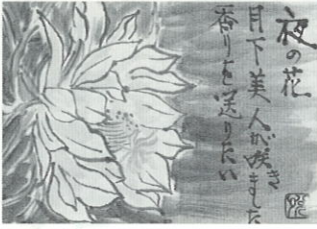 夜の花
月下美人が咲きました
香りを送りたい